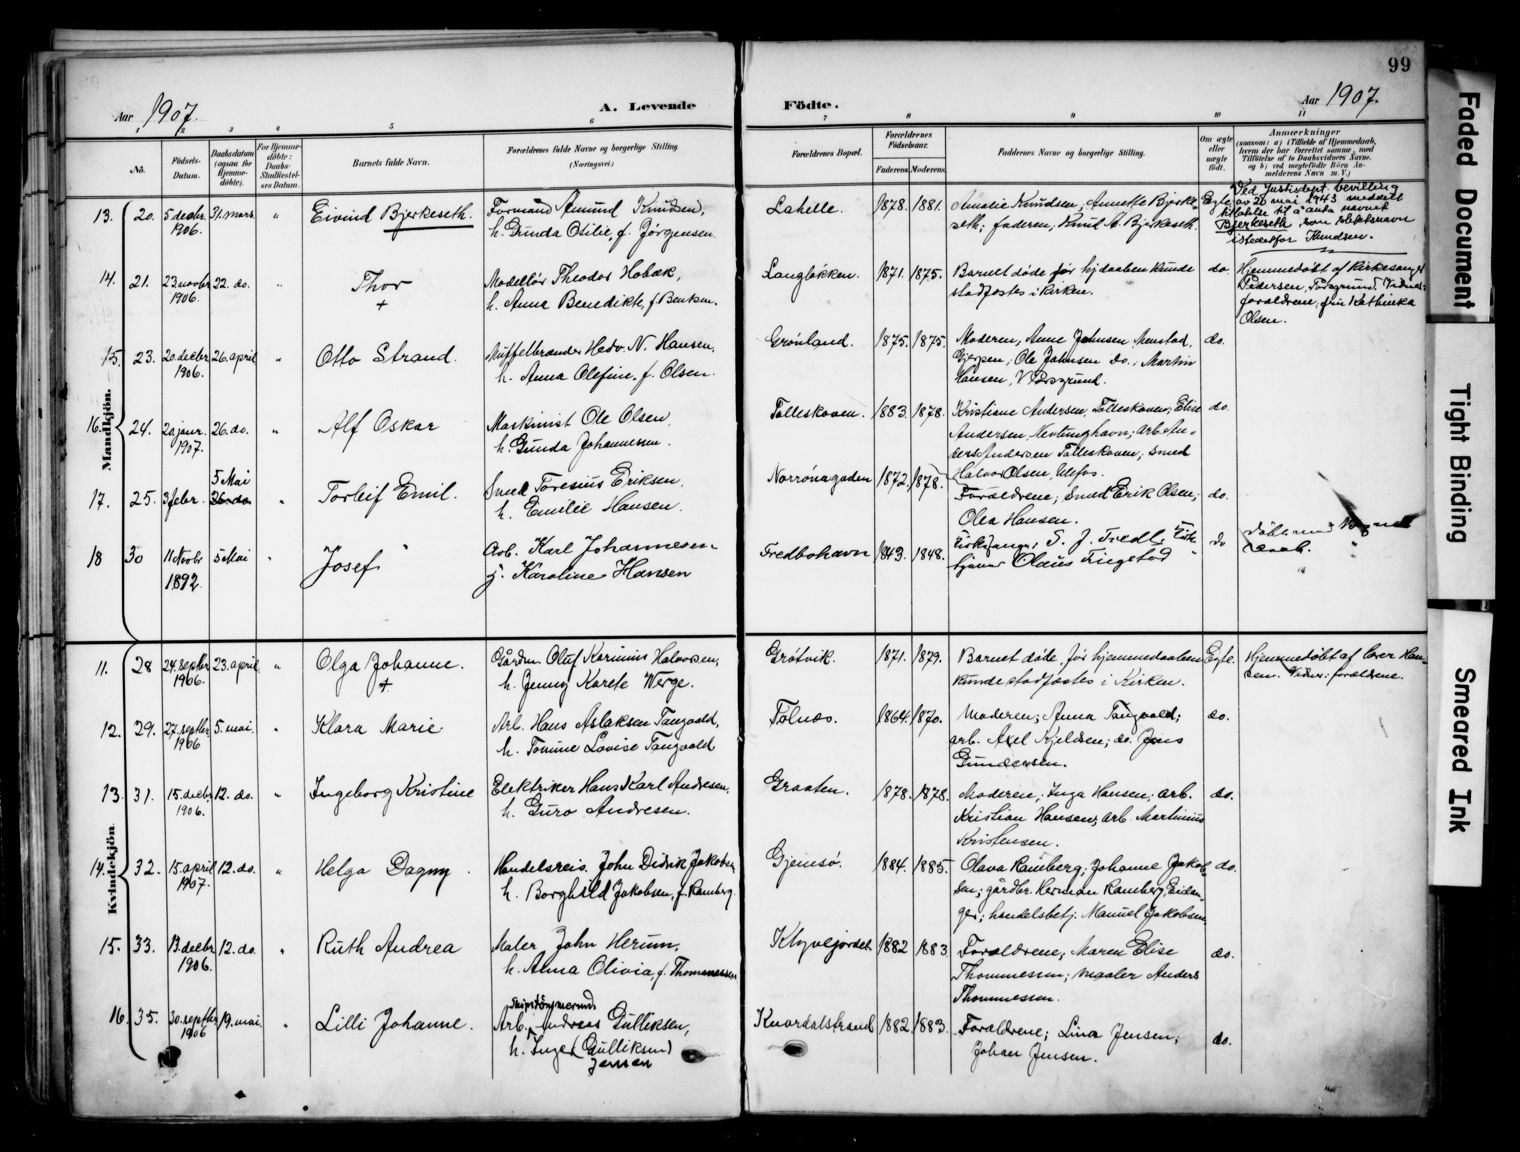 99
Aar 1907.
A. Levende Födte.
Aar 1907.
1 2 3 4 5 6 7 8 9 10 11
No.
Födsels-Datum.
Daabsdatum (ogsaa for Hjemme-döbte).
For Hjemme-döbte: Daabs-Stadfæstel-ses Datum.
Barnets fulde Navn.
Forældrenes fulde Navne og borgerlige Stilling. (Næringsvei.)
Forældrenes Bopæl.
Forældrenes Födselsaar.
Faderens. Moderens.
Faddernes Navne og borgerlige Stilling.
Om ægte eller uægte födt.
Anmærkninger
(saasom: a) i Tilfælde af Hjemmedaab, hvem der har forrettet samme, med Tilföielse af to Daabsvidners Navne, og b) ved uægtefödte Börn Anmelderens Navn m. V.)
Mandkjön.
13. 20. 5 decbr. 1906. 31. mars. " Eivind Bjerkeseth.
Formand Amund Knudsen,
h. Gunda Otilie, f. Jörgensen.
Lahelle. 1878. 1881.
Amalie Knudsen, Annette Bjerke-
seth; faderen; Knud A. Bjerkeseth.
Egte
Ved Justisdept. bevilling
av 20 mai 1943 meddelt
tillatelse til å anta navnet
Bjerkeseth som slektsnavn
istedetfor Knudsen.
14. 21. 23 novbr 1906. 22. do. " Thor +
Modellör Theodor Hobæk,
h. Anna Benedikte, f. Bentsen.
Langbakken. 1871. 1875.
Barnet döde för hjdaaben kunde
stadfæstes i kirken.
do.
Hjemmedöbt af kirkesanger
Pedersen, Porsgrund. Vidner:
forældrene, frk Kathinka
Olsen.
15. 23. 20. decbr 1906. 26. april " Otto Strand.
Muffelbrænder Hedv. N. Hansen,
h. Anna Olefine, f. Olsen.
Grönland. 1875. 1875.
Moderen, Anne Johnsen Menstad,
Gjerpen; Ole Johnsen do.; Martin
Hansen, V. Porsgrund.
do.
16. 24. 20 janr. 1907. 26. do. " Alf Oskar
Maskinist Ole Olsen,
h. Gunda Johannessen.
Tolleskoven. 1883. 1878.
Kristiane Andersen, Tolleskoven; Elise
Andersen, Nevlunghavn; arb. An-
ders Andersen Tolleskoven; smed
Halvor Olsen Ulefos.
do.
17. 25. 3 febr. 5 Mai " Torleif Emil.
Smed Toresius Eriksen,
h. Emilie Hansen.
Norrönagaden 1872. 1878.
Forældrene; Smed Erik Olsen;
Olea Hansen.
do.
18 30 11 Novbr 1892. 5 Mai Josef
Arb. Karl Johannesen
g. Karoline Hansen
Fredbohavn 1843. 1848.
Kirkesanger T. J. Tredl; Kirke-
tjener Olaus Tingstad
do
daab.
Kvindekjön.
11. 28 24. septbr 1906. 23. april. " Olga Johanne. +
Gårdm. Oluf Karinius Halvorsen,
h. Jenny Karete Werge.
Gråtvik. 1871. 1879.
Barnet döde, för hjemmedaaben
kunde stadfæstes i Kirken.
Egte.
Hjemmedöbt af lærer Han-
sen. Vidner: forældrene.
12. 29. 27. septbr 1906 5. mai. " Klara Marie
Arb. Hans Aslaksen Tangvald,
h. Tomine Lovise Tangvald
Folnæs. 1864. 1870.
Moderen; Anna Tangvald;
arb. Axel Kjeldsen; do. Jens
Gundersen.
do.
13. 31. 15. decbr 1906. 12. do. " Ingeborg Kristine
Elektriker Hans Karl Andresen,
h. Guro Andresen.
Graaten. 1878. 1878.
Moderen; Inga Hansen; arb.
Kristian Hansen; arb. Martinius
Kristensen.
do.
14. 32. 15. april 1907. 12. do. " Helga Dagny.
Handelsreis. John Didrik Jakobsen,
h. Borghild Jakobsen, f. Ramberg.
Gjemsö. 1884. 1885.
Olava Ramberg; Johanne Jakob-
sen; gårdbr. Herman Ramberg, Eidan-
ger; handelsbetj. Manuel Jakobsen
do.
15. 33. 13. decbr 1906. 12. do. " Ruth Andrea
Maler John Herum,
h. Anna Olivia, f. Thommessen
Klyvejordet 1882 1883
Forældrene; Maren Elise
Thommessen; maaler Anders
Thommessen.
do.
16. 35. 30. septbr 1906 19. mai. " Lilli Johanne.
skipstömmermd.
Arb. Andreas Gulliksen,
h. Inger (Gulliksen)
Jensen
Knardalstrand 1882. 1883.
Forældrene; Lina Jensen;
Johan Jensen.
do.
Faded Document
Tight Binding
Smeared Ink